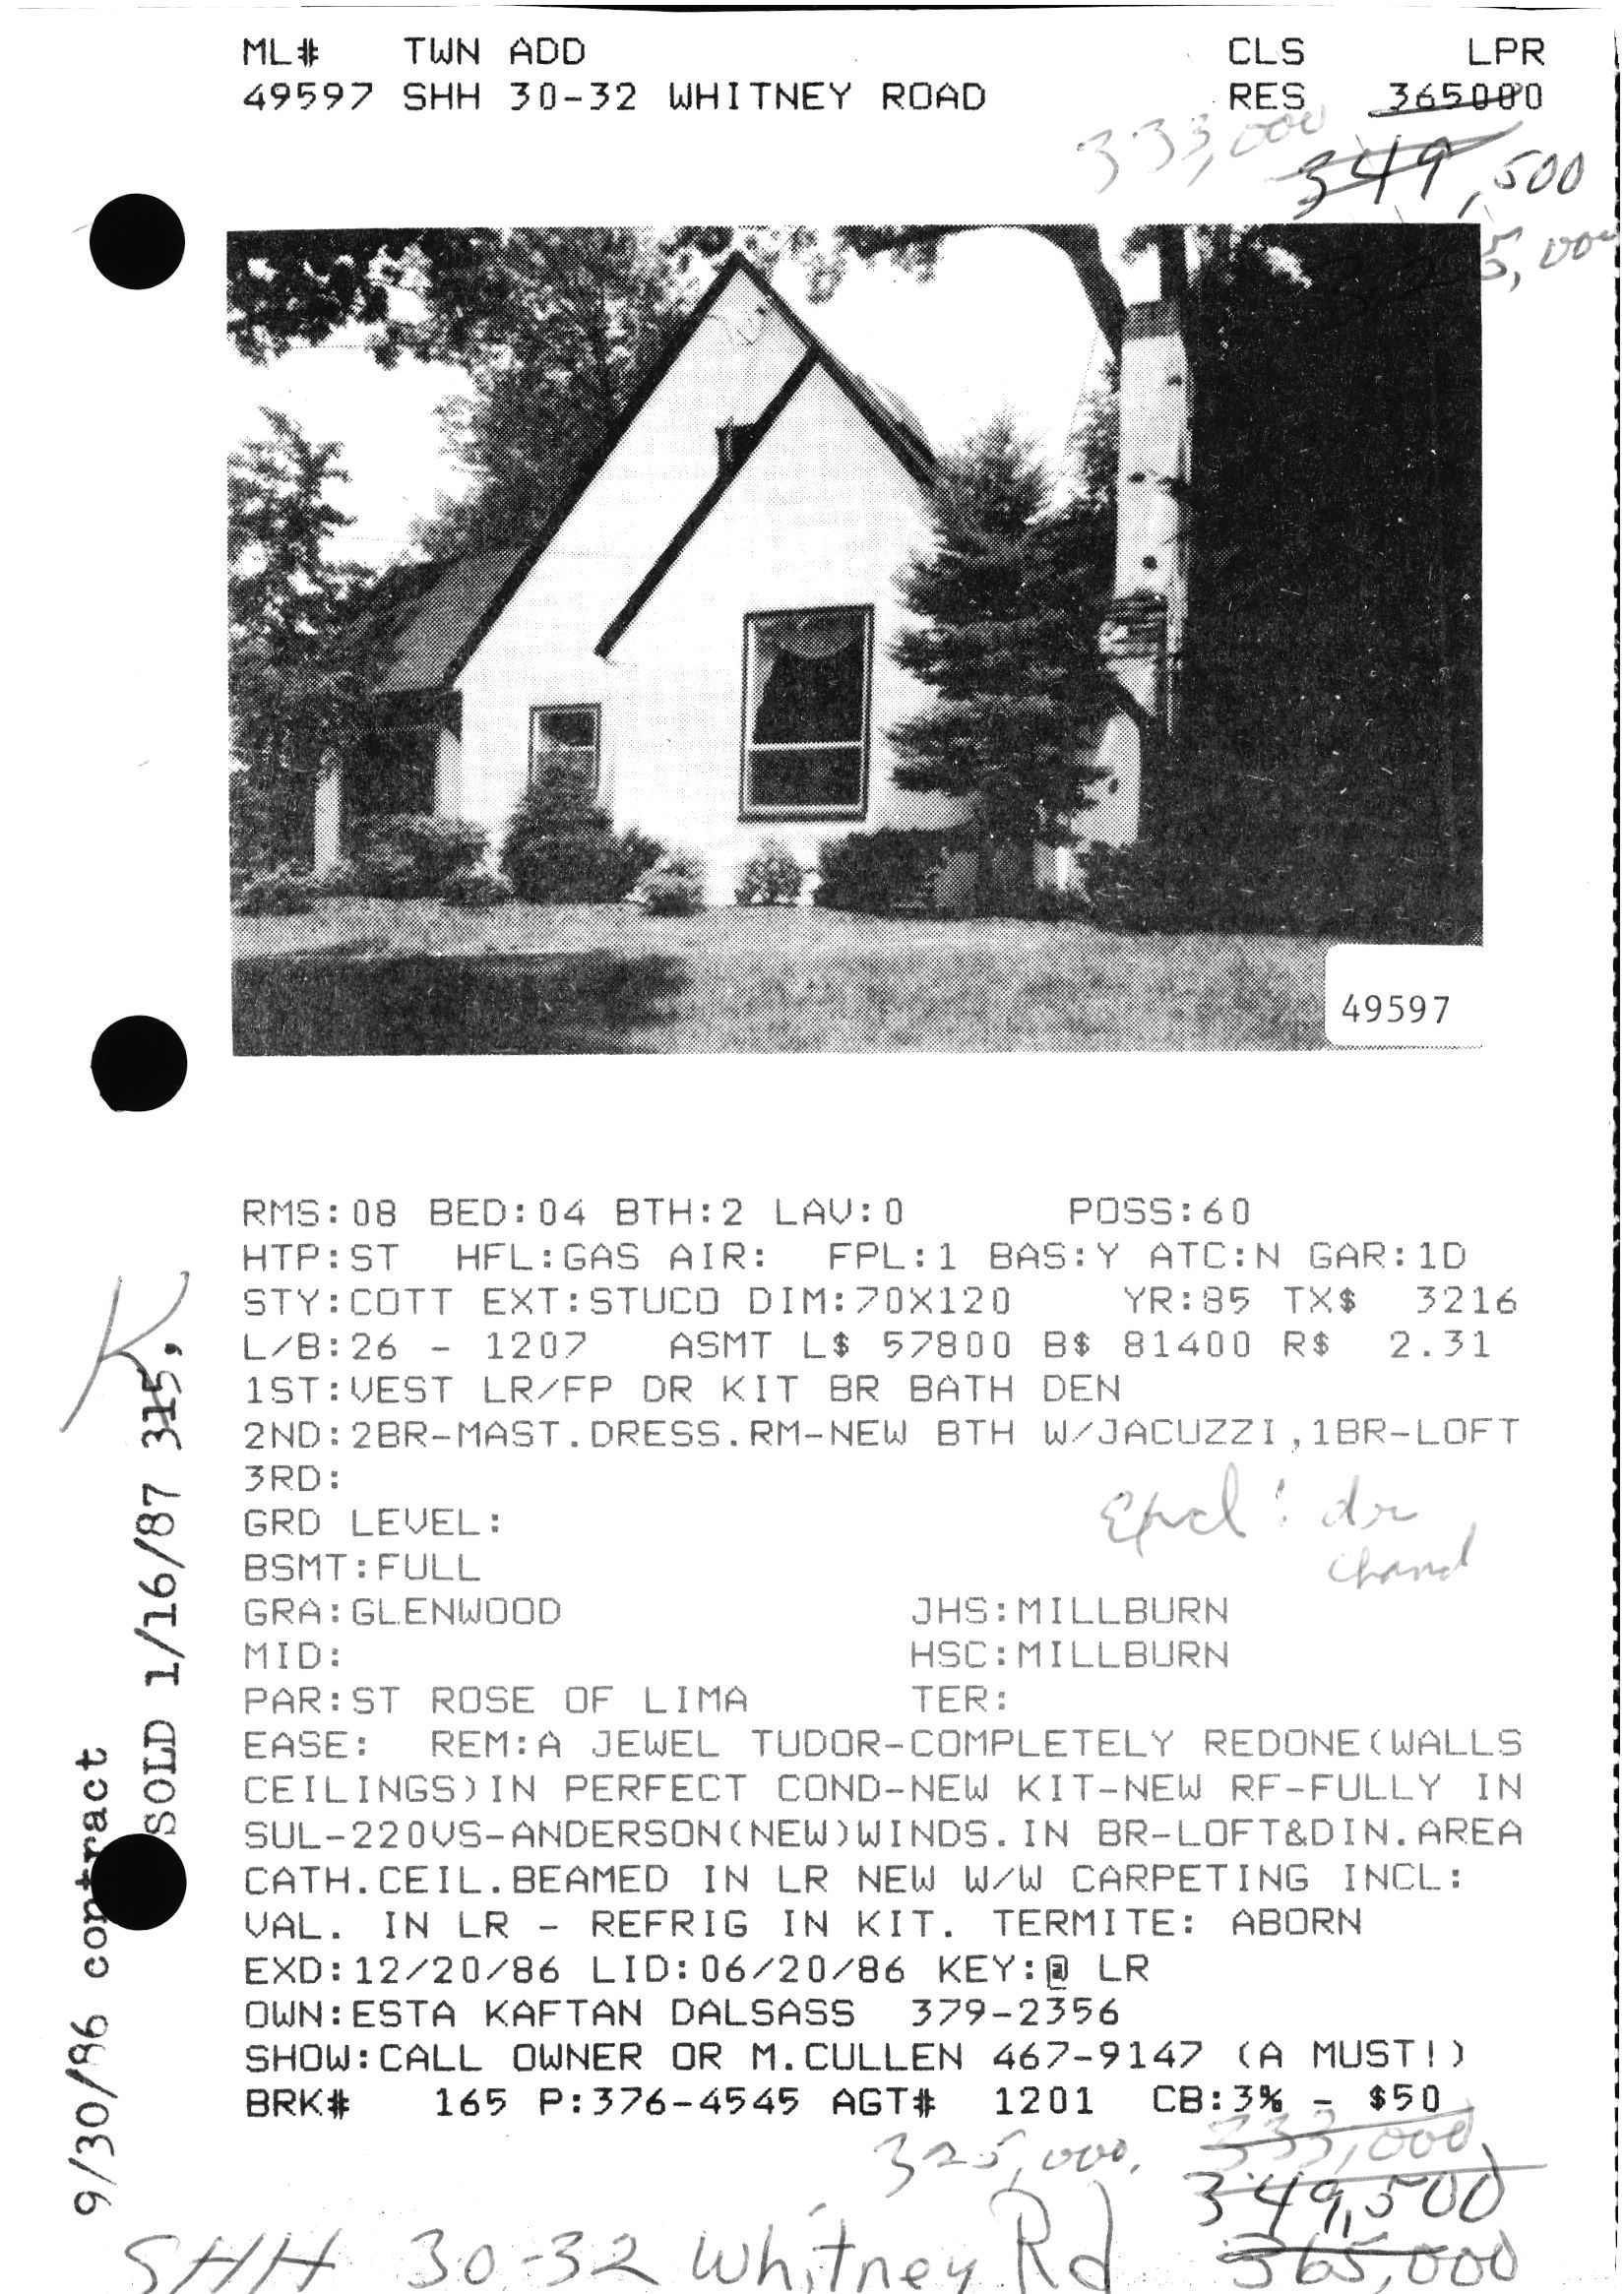 ML# TWN ADD CLS LPR
49597 SHH 30-32 WHITNEY ROAD RES 365000
333,000
349,500
5,000
49597
RMS:08 BED:04 BTH:2 LAV:0 POSS:60
HTP:ST HFL:GAS AIR: FPL:1 BAS:Y ATC:N GAR:1D
STY:COTT EXT:STUCO DIM:70X120 YR:85 TX$ 3216
L/B:26 - 1207 ASMT L$ 57800 B$ 81400 R$ 2.31
1ST:VEST LR/FP DR KIT BR BATH DEN
2ND:2BR-MAST.DRESS.RM-NEW BTH W/JACUZZI,1BR-LOFT
3RD:
GRD LEVEL:
Excl: dr
chand
BSMT:FULL
GRA:GLENWOOD JHS:MILLBURN
MID: HSC:MILLBURN
PAR:ST ROSE OF LIMA TER:
EASE: REM:A JEWEL TUDOR-COMPLETELY REDONE(WALLS
CEILINGS)IN PERFECT COND-NEW KIT-NEW RF-FULLY IN
SUL-220VS-ANDERSON(NEW)WINDS.IN BR-LOFT&DIN.AREA
CATH.CEIL.BEAMED IN LR NEW W/W CARPETING INCL:
VAL. IN LR - REFRIG IN KIT. TERMITE: ABORN
EXD:12/20/86 LID:06/20/86 KEY:@ LR
OWN:ESTA KAFTAN DALSASS 379-2356
SHOW:CALL OWNER OR M.CULLEN 467-9147 (A MUST!)
BRK# 165 P:376-4545 AGT# 1201 CB:3% - $50
325,000. 333,000
349,500
SHH 30-32 Whitney Rd 365,000
9/30/86 contract
SOLD 1/16/87 315,
K